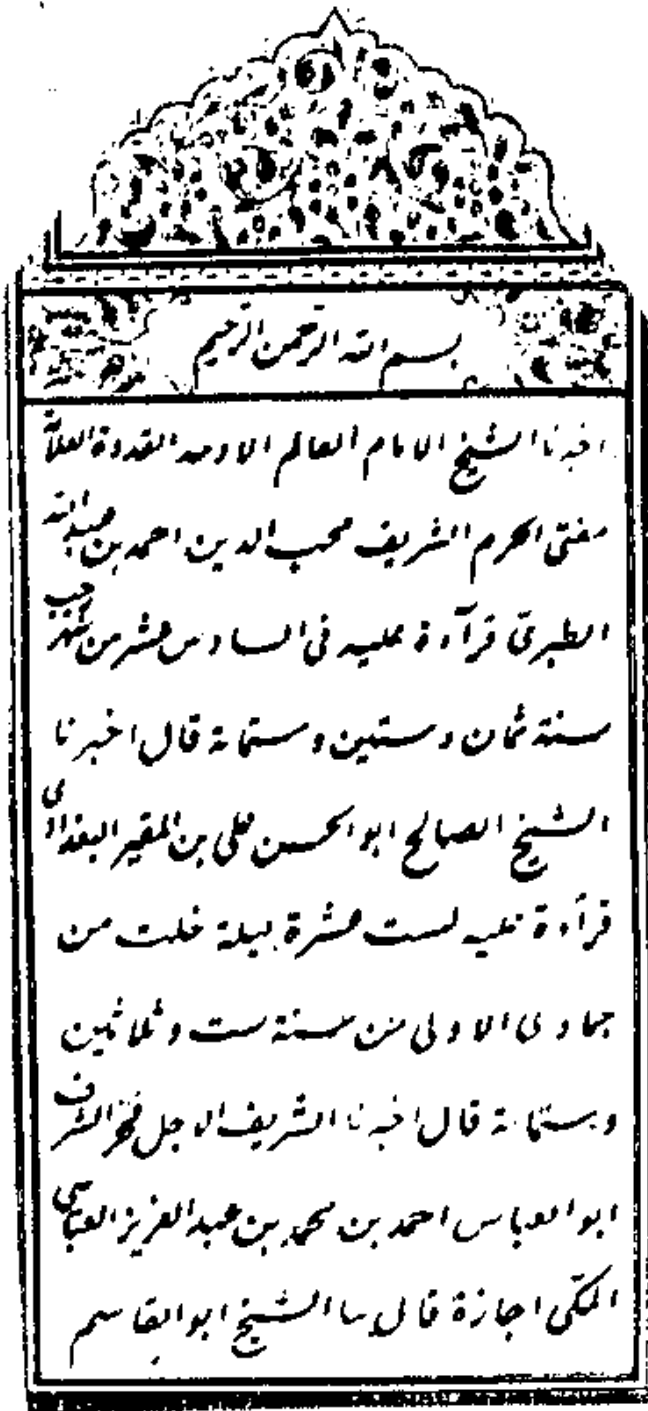 بسم الله الرحمن الرحيم
اخبرنا الشيخ الامام العالم الاوحد القدوة العلامة
مفتى الحرم الشريف محب الدين احمد بن عبد الله
الطبرىّ قرآءة عليه فى السادس عشر من شهر رجب
سنة ثمان وستين وستماية قال اخبرنا
الشيخ الصالح ابو الحسن على بن المقير البغدادى
قرآءة عليه لست عشرة ليلة خلت من
جمادى الاولى من سنة ست وثلاثين
وستماية قال اخبرنا الشريف الاجل فخر الشرف
ابو العباس احمد بن محمد بن عبد العزيز العباسى
المكّى اجازة قال الشيخ ابو القاسم